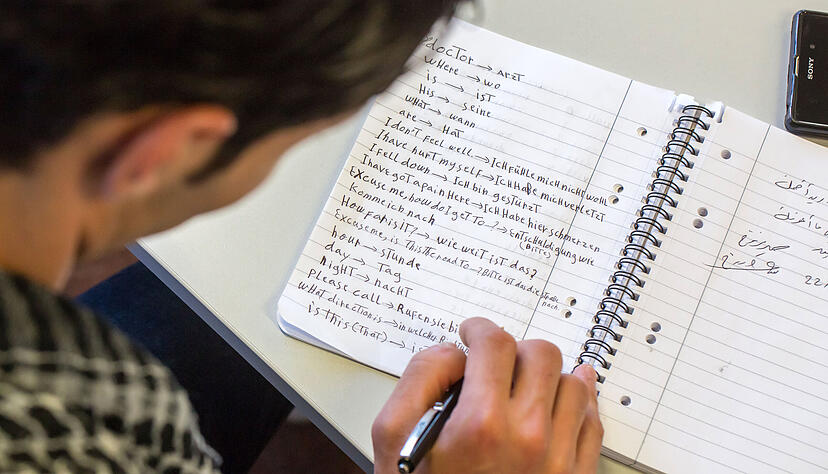 doctor → Arzt
where → wo
is → ist
His → seine
what → wann
are → Hat
I don't feel well → ICH fühle mich nicht wohl
I have hurt myself → ICH habe mich verletzt
I fell down → ICH bin gestürzt
I have got a pain Here → ICH Habe hier schmerzen
Excuse me, how do I get to → ? → Entschuldigung wie
(Bitte)
komme ich nach
How far is it? → wie weit ist das?
Excuse me, is this the road to → ? Bitte ist das die straße
nach
hour → stunde
day → Tag
night → nacht
please call → Rufen sie bi
what direction is → in welche
is this (that) → is
SONY
22